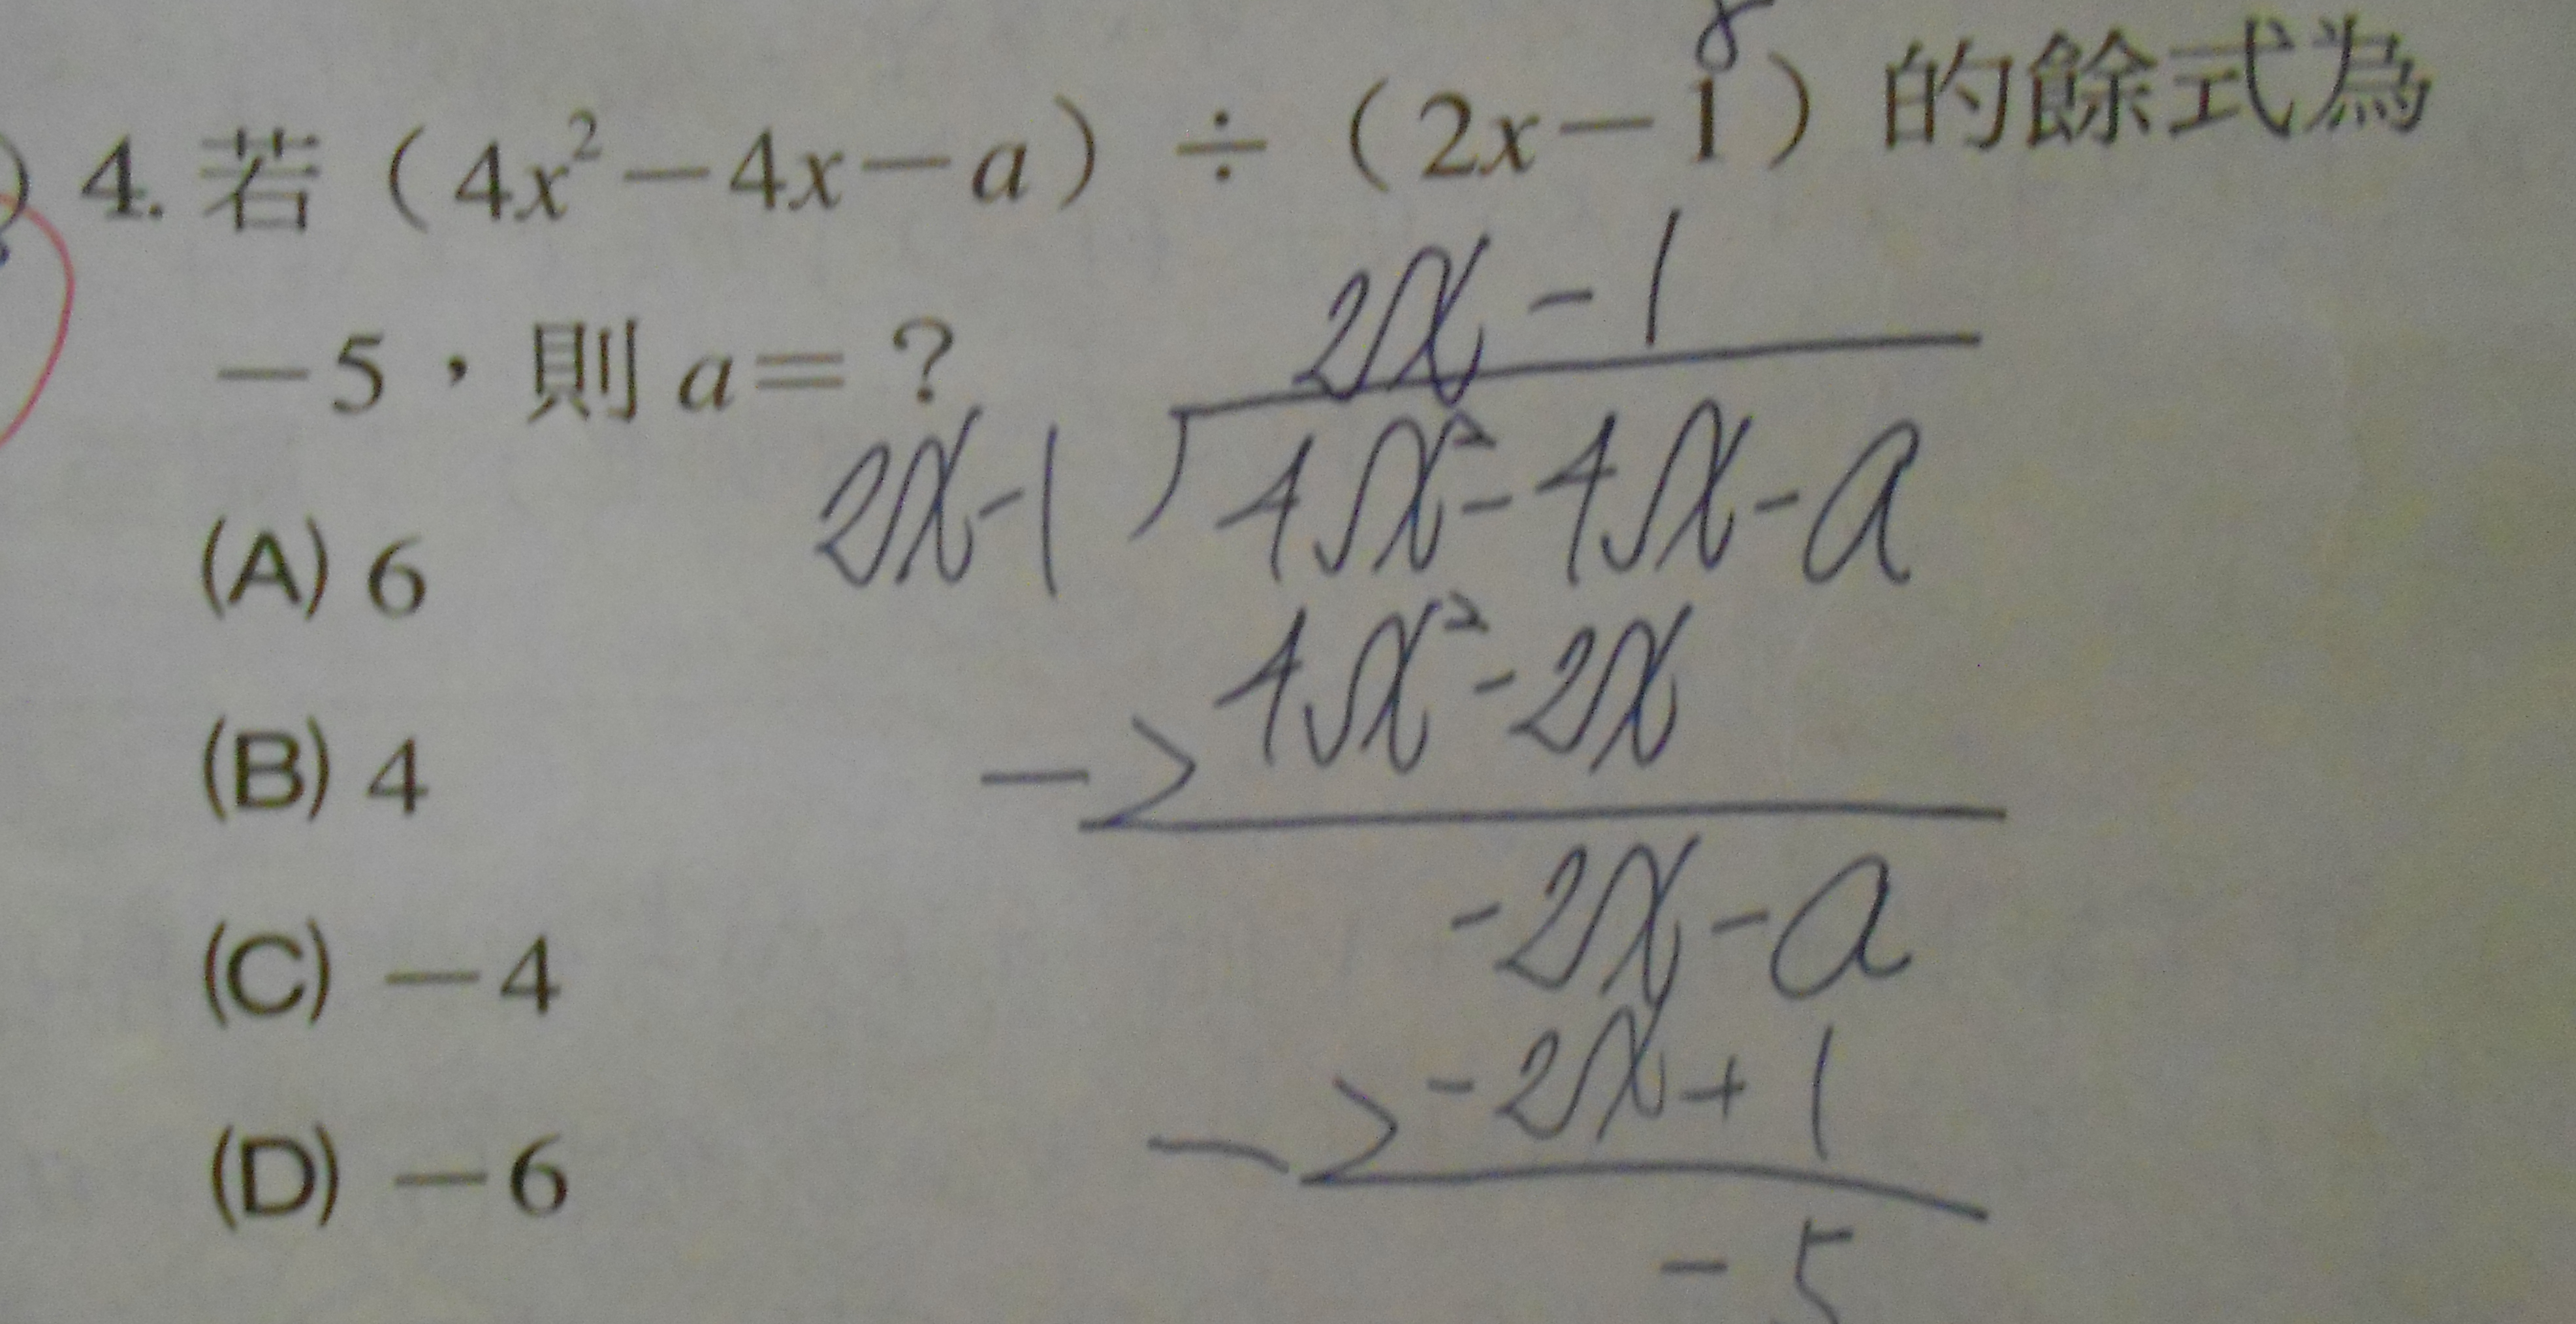 4. 若（4x²－4x－a）÷（2x－1）的餘式為
－5，則 a＝？
(A) 6
(B) 4
(C) －4
(D) －6
2x - 1
2x-1 4x²-4x-a
4x²-2x
-2x-a
-2x+1
-5